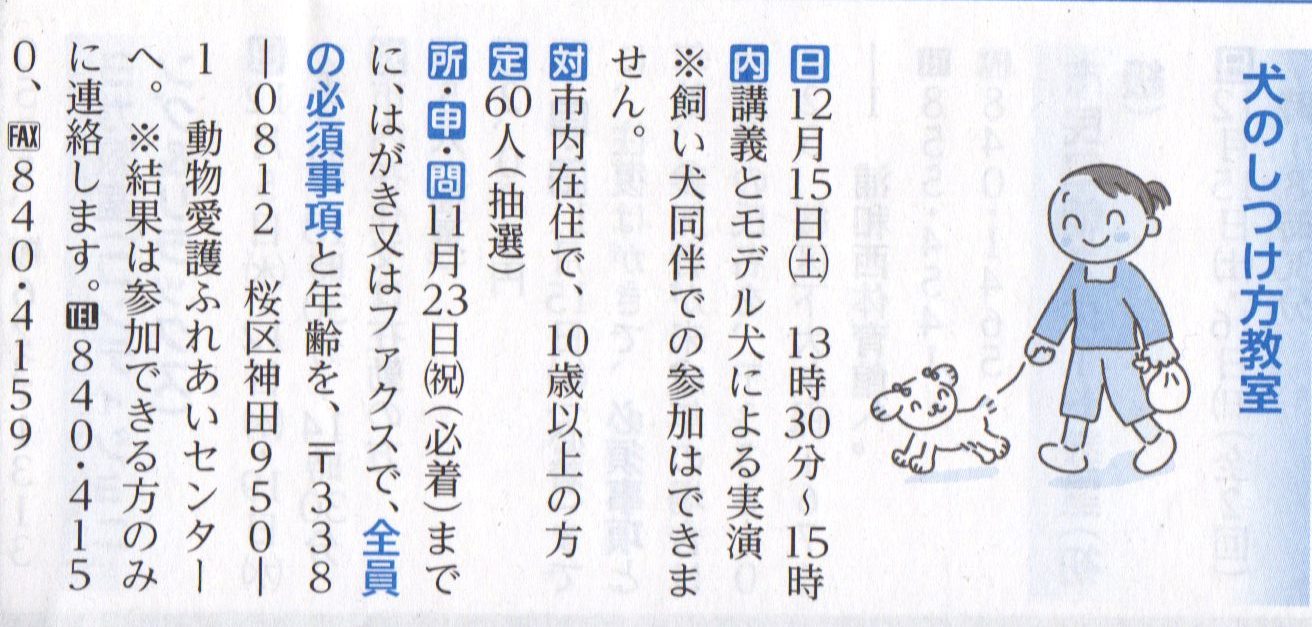 犬のしつけ方教室
日12月15日㈯　13時30分〜15時
内講義とモデル犬による実演
※飼い犬同伴での参加はできま
せん。
対市内在住で、10歳以上の方
定60人(抽選)
所・申・問11月23日㈷(必着)まで
に、はがき又はファクスで、全員
の必須事項と年齢を、〒338
―0812　桜区神田950―
1　動物愛護ふれあいセンター
へ。　※結果は参加できる方のみ
に連絡します。TEL840・415
0、FAX840・4159